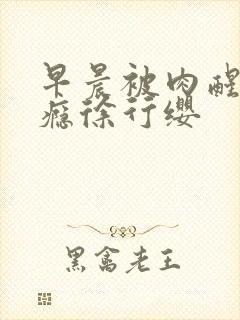 早晨被肉醒
瘾徐行缨
黑禽老王